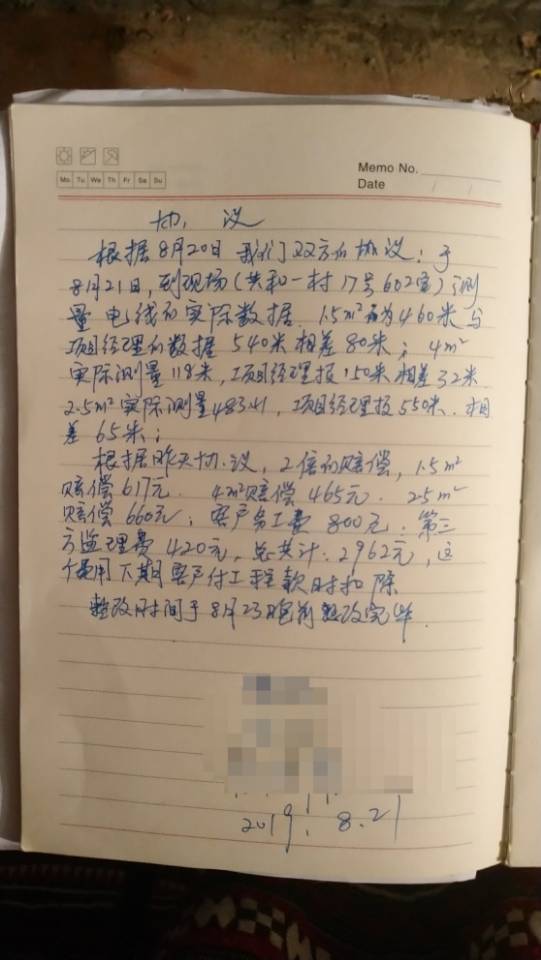 Memo No.
Mo Tu We Th Fr Sa Su
Date / /
协议
根据8月20日我们双方的协议:于
8月21日,到现场(共和一村17号602室)测
量电线的实际数据.1.5m²为460米与
项目经理的数据540米相差80米;4m²
实际测量118米,项目经理报150米相差32米
2.5m²实际测量485米,项目经理报550米.相
差65米;
根据昨天协议,2倍的赔偿,1.5m²
赔偿617元.4m²赔偿465元.2.5m²
赔偿660元;客户务工费800元;第三
方监理费420元,总共计:2962元,这
个费用下期客户付工程款时扣除
整改时间于8月23日前整改完毕.
2019.8.21